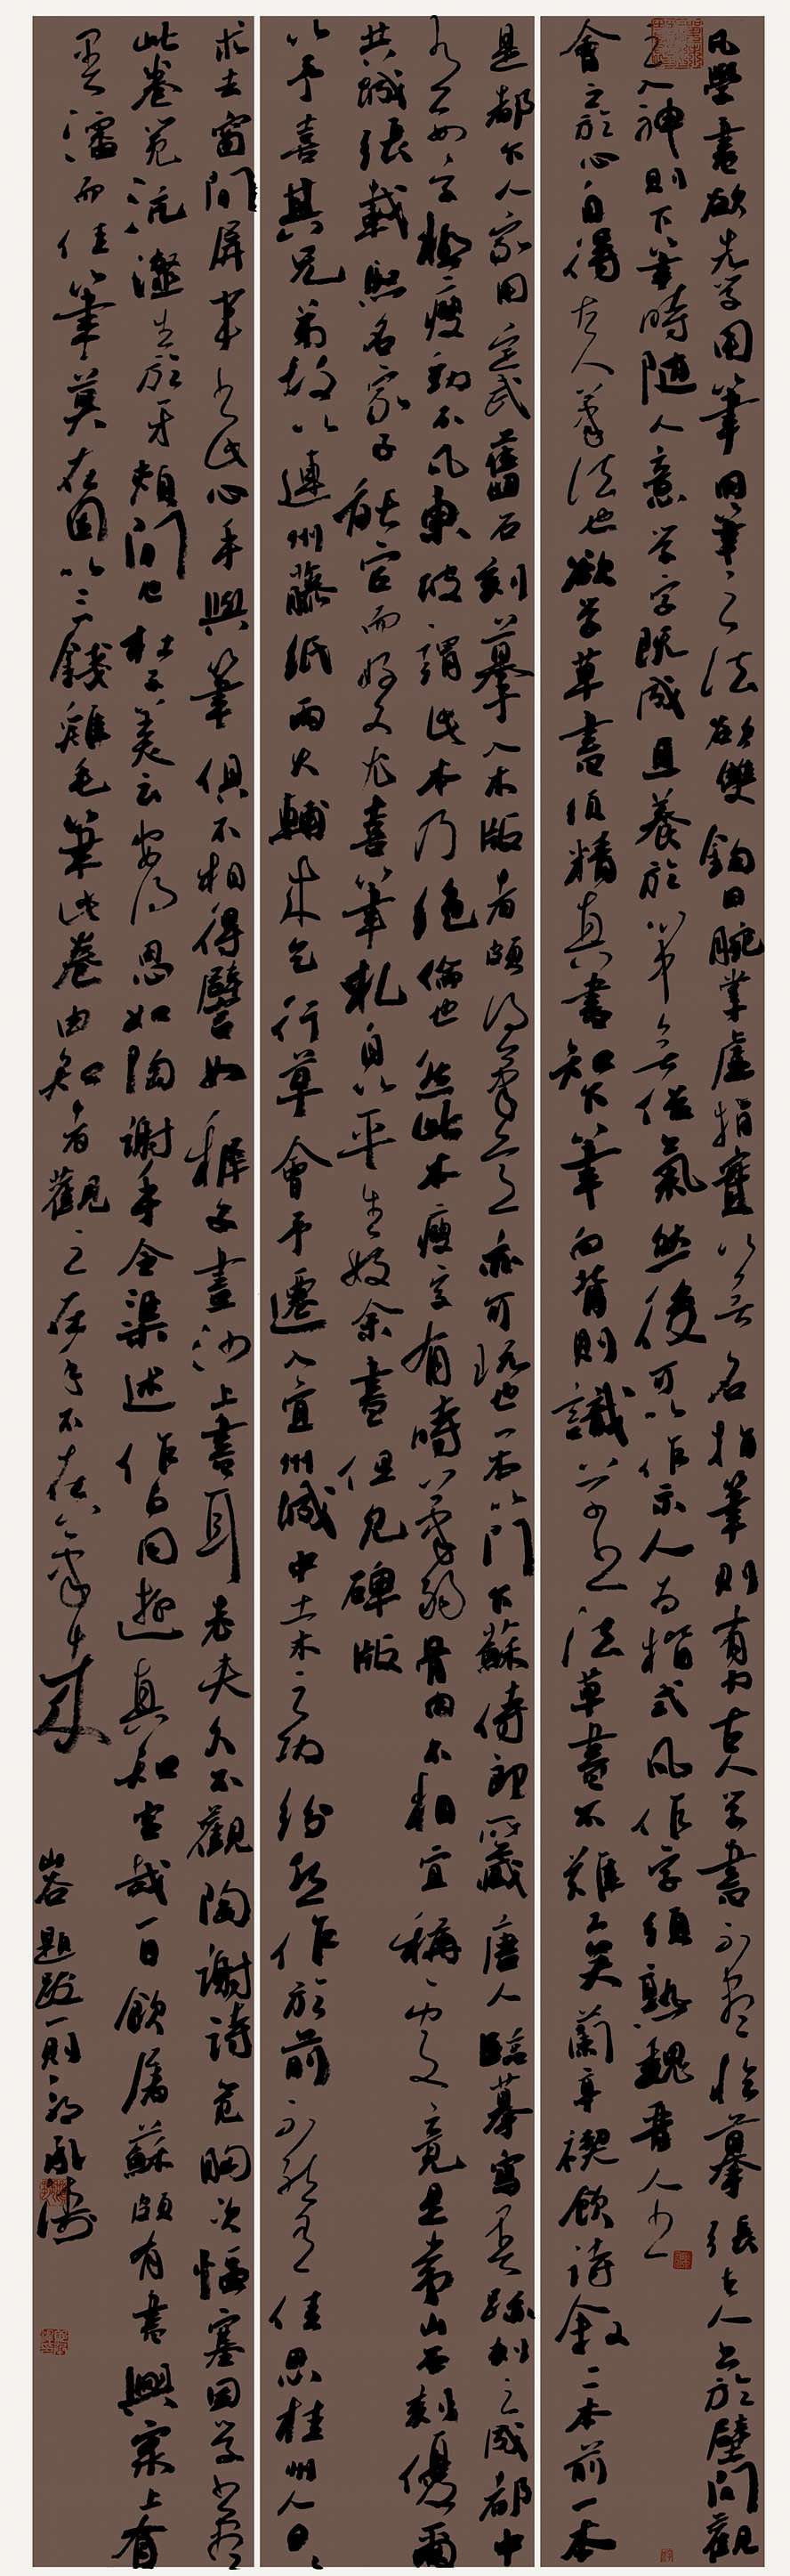 凡學書欲先學用筆用筆之法欲雙鉤回腕掌虛指實以無名指筆則有力古人學書不盡臨摹張古人書於壁間觀
之入神則下筆時隨人意學字既成且養於心中無俗氣然後可以作示人為楷式凡作字須熟魏晉人書
會之於心自得古人筆法也欲學草書須精真書知下筆向背則識草書法草書不難工矣蘭亭禊飲詩敘二本前一本
是都下人家用定武舊石刻摹入木版者頗得筆意亦可玩也一本以門下蘇侍郎所藏唐人臨摹寫墨跡刻之成都中
有數字極瘦勁不凡東坡謂此本乃絕倫也然此本瘦字有時筆弱骨肉不相宜稱處又竟是常山石刻優爾
共城張載熙名家子能官而好文尤喜筆札自以平生好余書但見碑版
以予喜其兄弟故以連州藤紙兩大輔來乞行草會予遷入宜州城中土木之功紛然作於前不能有佳思桂州人日日
求去窗間屏事書此心手與筆俱不相得譬如稚子畫沙上書耳老夫久不觀陶謝詩覺胸次愊塞因學書盡
此卷覺沆瀣生於牙頰間也杜子美云安得思如陶謝手令渠述作與同遊真知言哉一日飲屠蘇頗有書興案上有
墨瀋而佳筆莫在因以三錢雞毛筆此卷由知者觀之在手不在筆來
山谷題跋一則